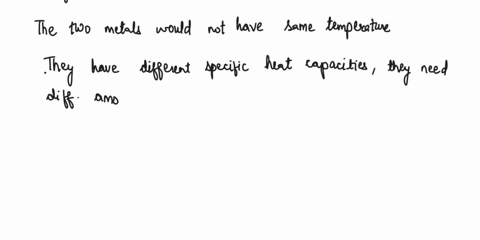 The two metals would not have same temperature
. They have different specific heat capacities, they need
diff. amo